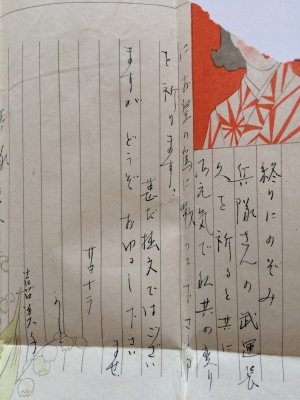 終りにのぞみ
兵隊さんの武運長
久を祈ると共に
お元気で私共の変り
にお の為に戦って下さる
を祈ります。
甚だ拙文ではござい
ますがどうぞお ゆるし下さい
ませ
サヨナラ
かしこ
より
兵隊